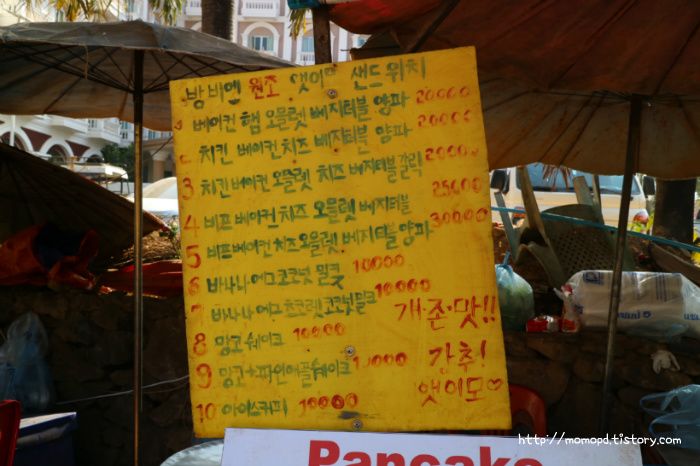 방비엥 원조 앳이모 샌드위치
1 베이컨 햄 오믈렛 베지터블 양파 20000
2 치킨 베이컨 치즈 베지터블 양파 20000
3 치킨 베이컨 오믈렛 치즈 베지터블 갈릭 20000
4 비프 베이컨 치즈 오믈렛 베지터블 25000
5 비프 베이컨 치즈 오믈렛 베지터블 양파 30000
6 바나나 에그 코코넛 밀크 10000
7 바나나 에그 초코렛 코코넛 밀크 10000
8 망고 쉐이크 10000
9 망고+파인애플 쉐이크 10000
10 아이스커피 10000
개존·맛!!
강추!
앳이모♡
Pancake
http://momopd.tistory.com